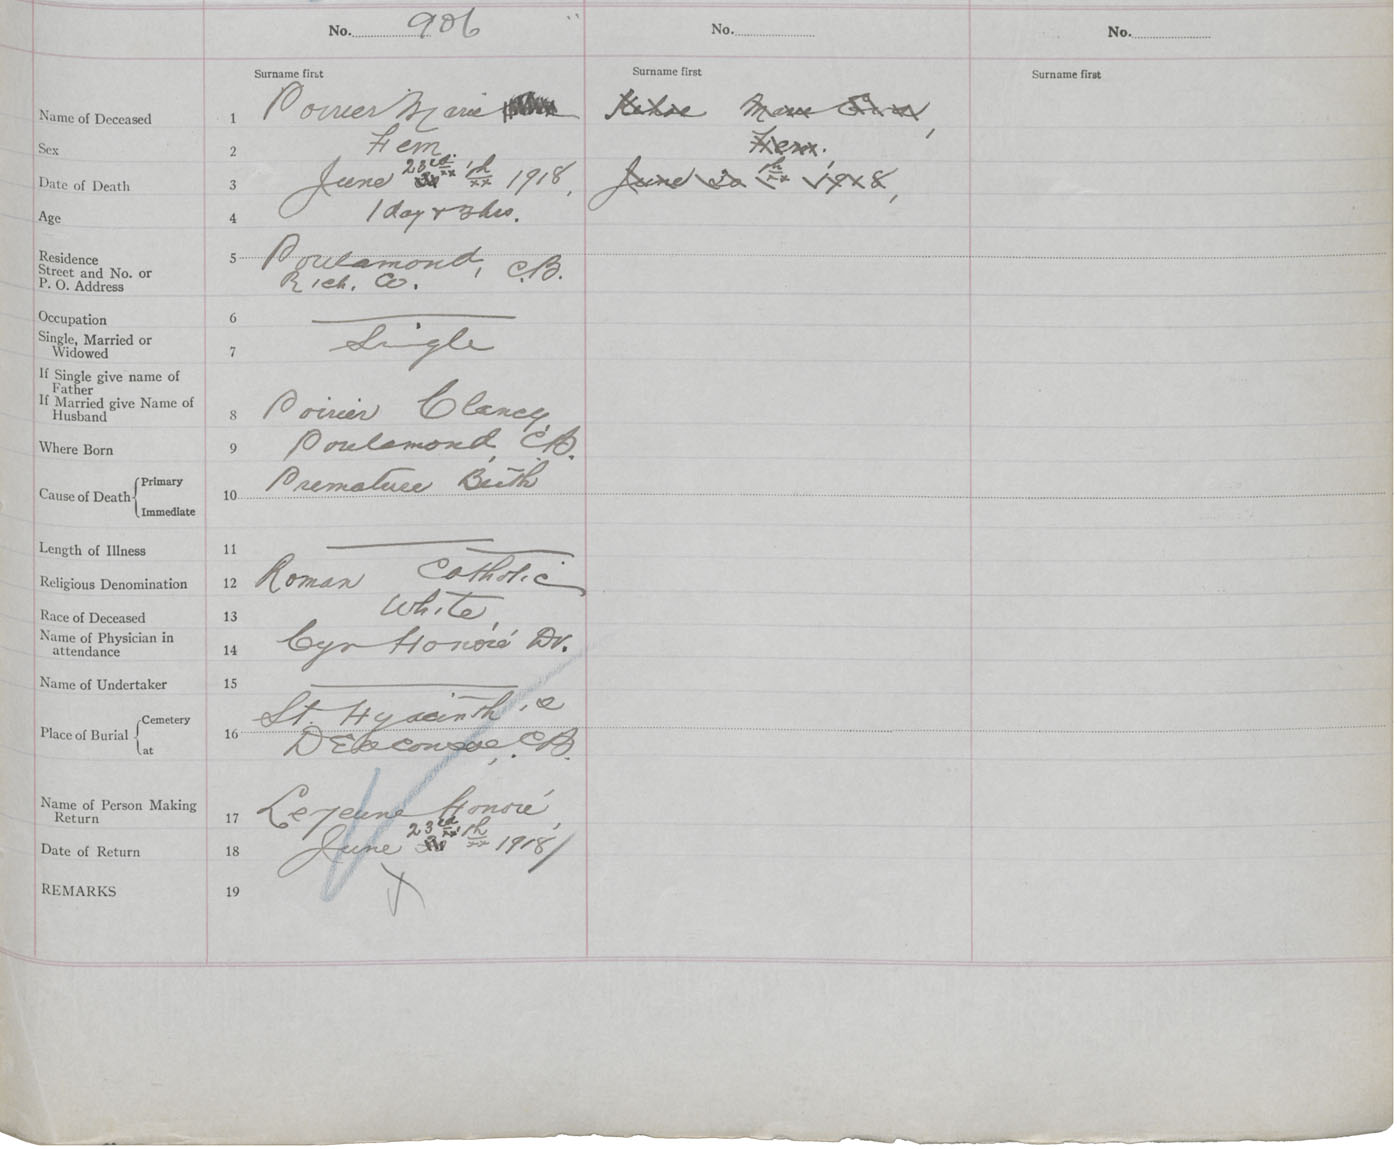 No. 906
No.
No.
Surname first
Surname first
Surname first
Name of Deceased 1 Poirier Marie
Kehoe Marie
Sex 2 Fem
Fem.
Date of Death 3 June 23rd th 1918,
June 30 th 1918,
Age 4 1 day & 3 hrs.
Residence
Street and No. or
P. O. Address
5 Poulamond, C.B.
Rich. Co.
Occupation 6
Single, Married or
Widowed
7 Single
If Single give name of
Father
If Married give Name of
Husband
8 Poirier Clancy,
Where Born 9 Poulamond, C.B.
Cause of Death Primary
Immediate
10 Premature Birth
Length of Illness 11
Religious Denomination 12 Roman Catholic
Race of Deceased 13 White,
Name of Physician in
attendance
14 Cyr Honoré Dr.
Name of Undertaker 15
Place of Burial Cemetery
at
16 St. Hyacinthe
D'Escousse, C.B.
Name of Person Making
Return
17 Lejeune Honoré,
Date of Return 18 June 23rd th 1918/
REMARKS 19
X